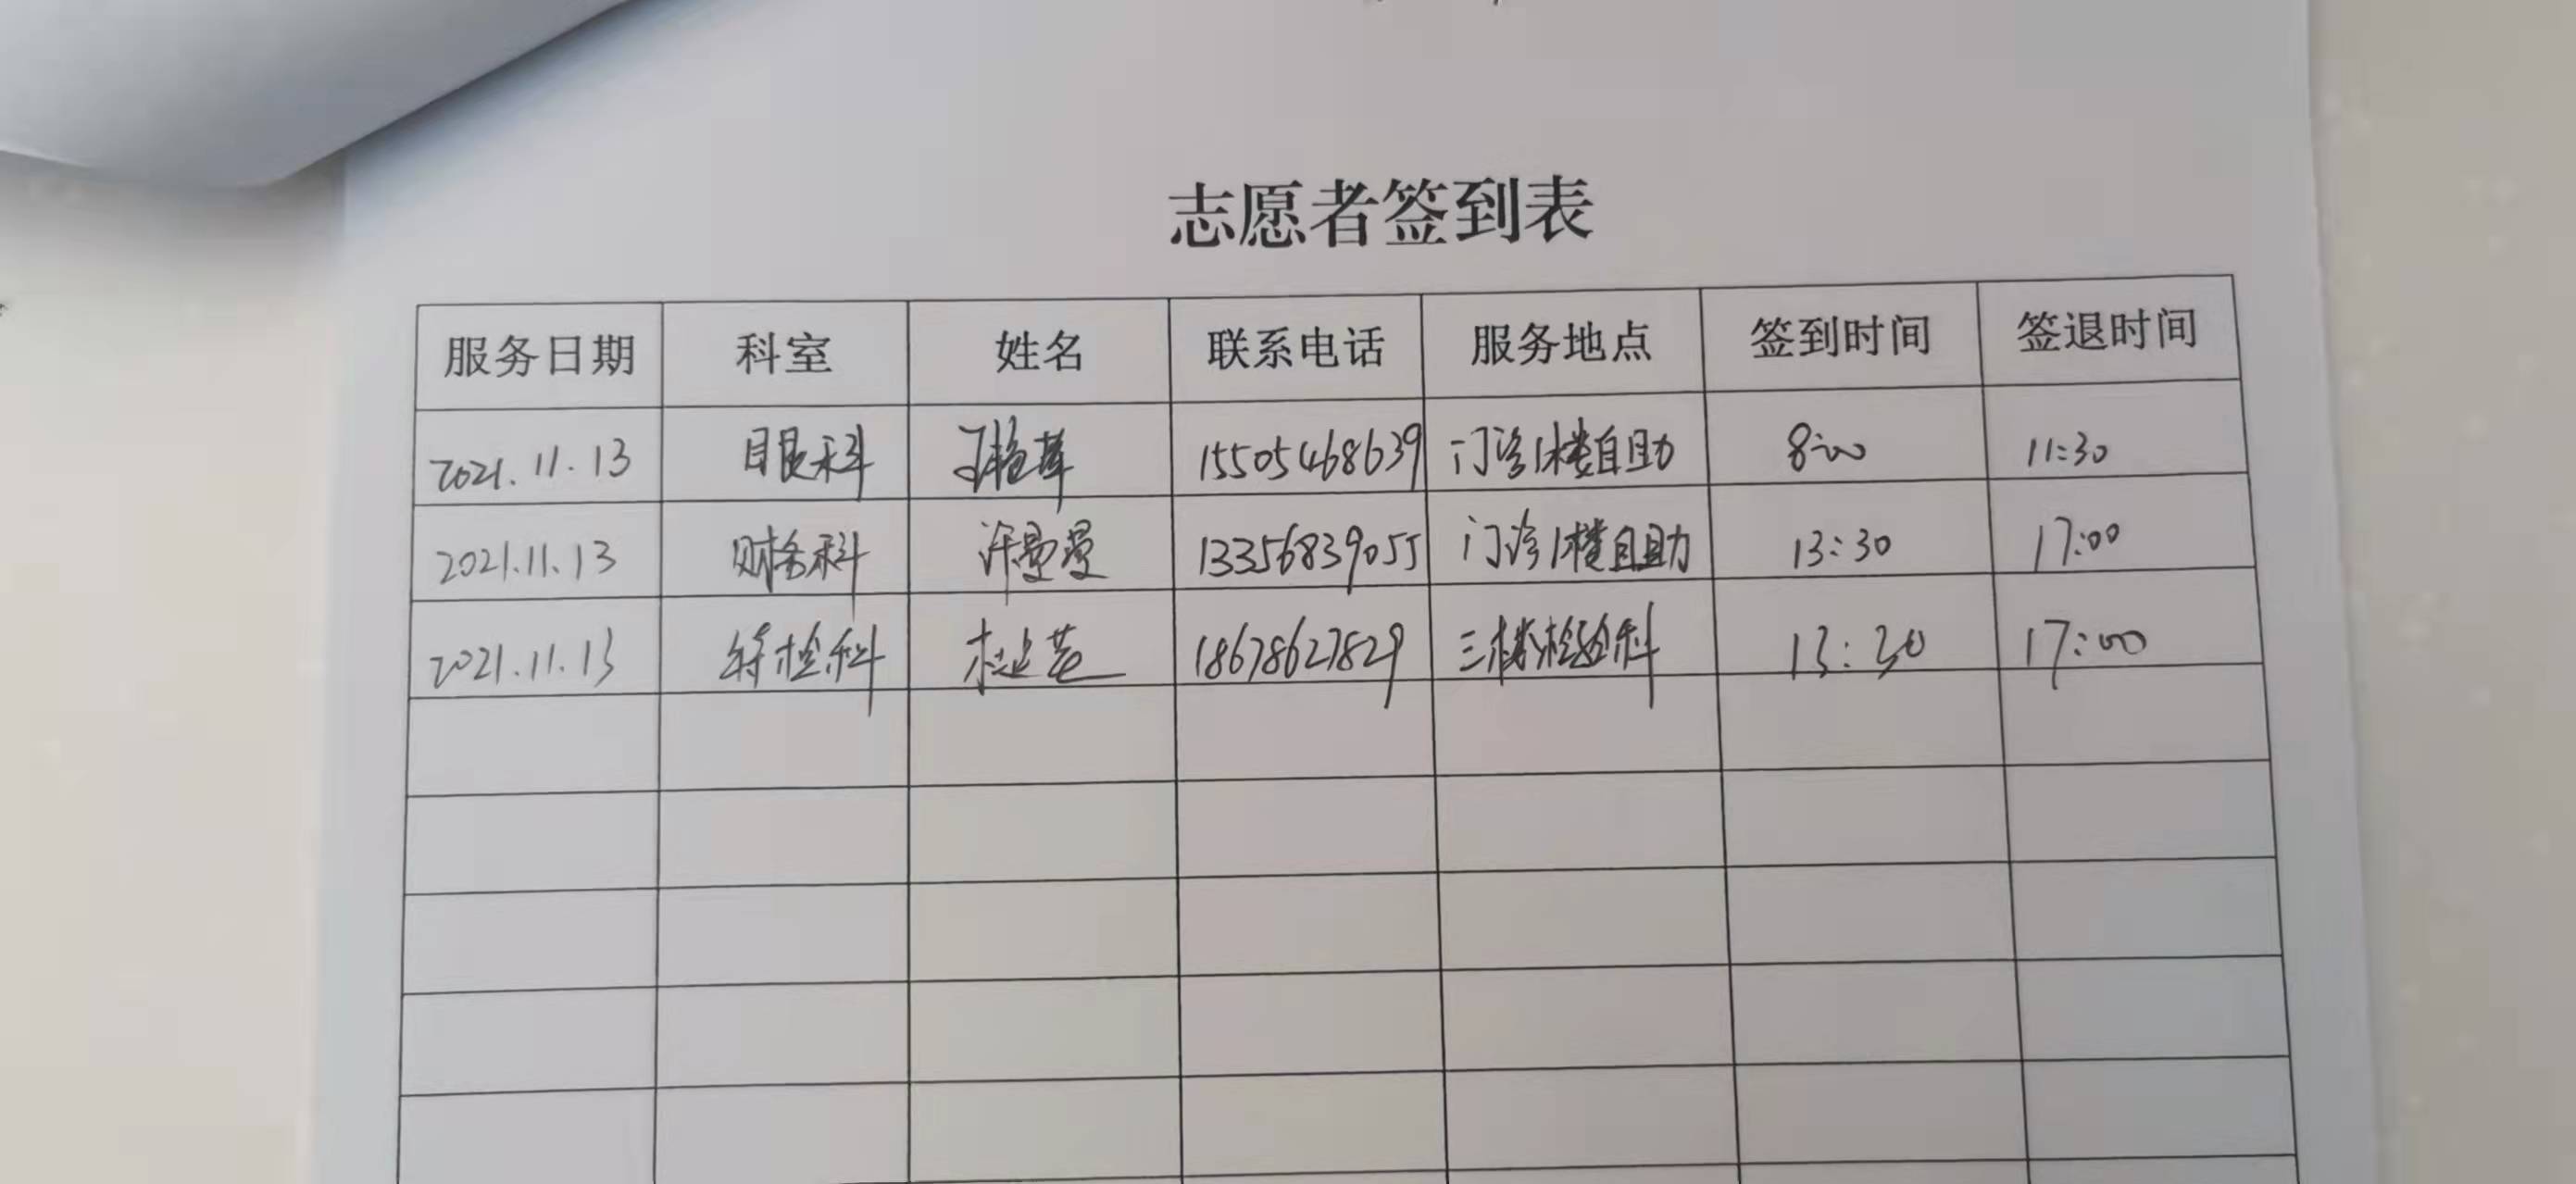 志愿者签到表
服务日期 科室 姓名 联系电话 服务地点 签到时间 签退时间
2021.11.13 眼科 15505468639 门诊1楼自助 8:00 11:30
2021.11.13 财务科 许曼曼 13356839055 门诊1楼自助 13:30 17:00
2021.11.13 特检科 18678627829 三楼检验科 13:30 17:00